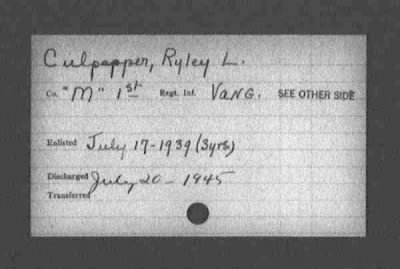 Culpepper, Ryley L.
Co. "M" 1st Regt. Inf. VANG. SEE OTHER SIDE
Enlisted July 17-1939 (3yrs)
Discharged July 20-1945
Transferred